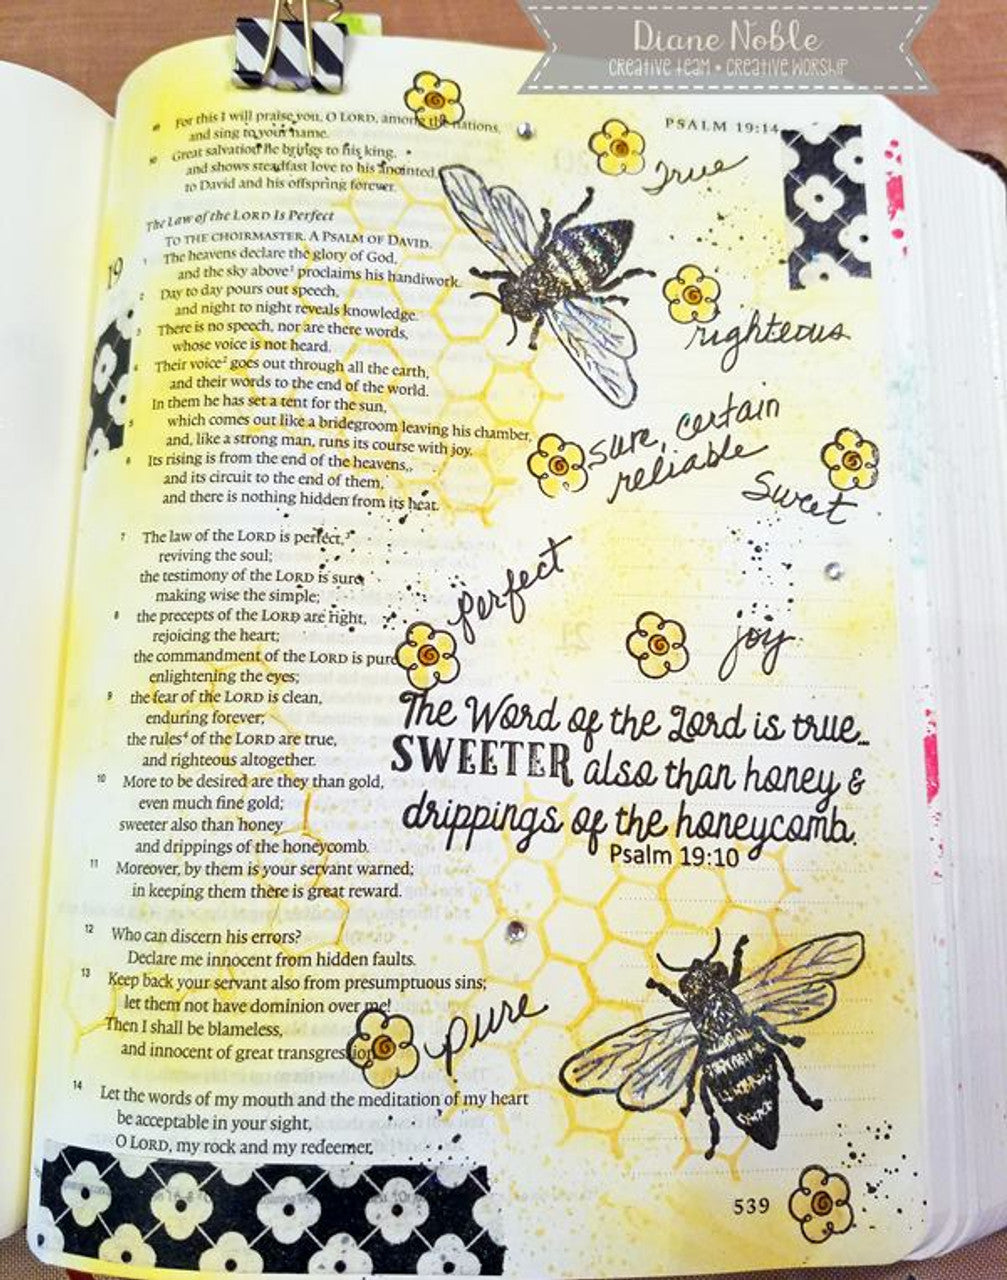 Diane Noble
CREATIVE TEAM • CREATIVE WORSHIP
PSALM 19:14
For this I will praise you, O LORD, among the nations,
and sing to your name.
50 Great salvation he brings to his king,
and shows steadfast love to his anointed,
to David and his offspring forever.
The Law of the LORD Is Perfect
TO THE CHOIRMASTER. A PSALM OF DAVID.
19
1 The heavens declare the glory of God,
and the sky above¹ proclaims his handiwork.
2 Day to day pours out speech,
and night to night reveals knowledge.
3 There is no speech, nor are there words,
whose voice is not heard.
4 Their voice² goes out through all the earth,
and their words to the end of the world.
In them he has set a tent for the sun,
5 which comes out like a bridegroom leaving his chamber,
and, like a strong man, runs its course with joy.
6 Its rising is from the end of the heavens,
and its circuit to the end of them,
and there is nothing hidden from its heat.
7 The law of the LORD is perfect,³
reviving the soul;
the testimony of the LORD is sure,
making wise the simple;
8 the precepts of the LORD are right,
rejoicing the heart;
the commandment of the LORD is pure
enlightening the eyes;
9 the fear of the LORD is clean,
enduring forever;
the rules⁴ of the LORD are true,
and righteous altogether.
10 More to be desired are they than gold,
even much fine gold;
sweeter also than honey
and drippings of the honeycomb.
11 Moreover, by them is your servant warned;
in keeping them there is great reward.
12 Who can discern his errors?
Declare me innocent from hidden faults.
13 Keep back your servant also from presumptuous sins;
let them not have dominion over me!
Then I shall be blameless,
and innocent of great transgression
14 Let the words of my mouth and the meditation of my heart
be acceptable in your sight,
O LORD, my rock and my redeemer.
True
righteous
sure, certain
reliable
Sweet
perfect
joy
The Word of the Lord is true...
SWEETER also than honey &
drippings of the honeycomb.
Psalm 19:10
pure
539